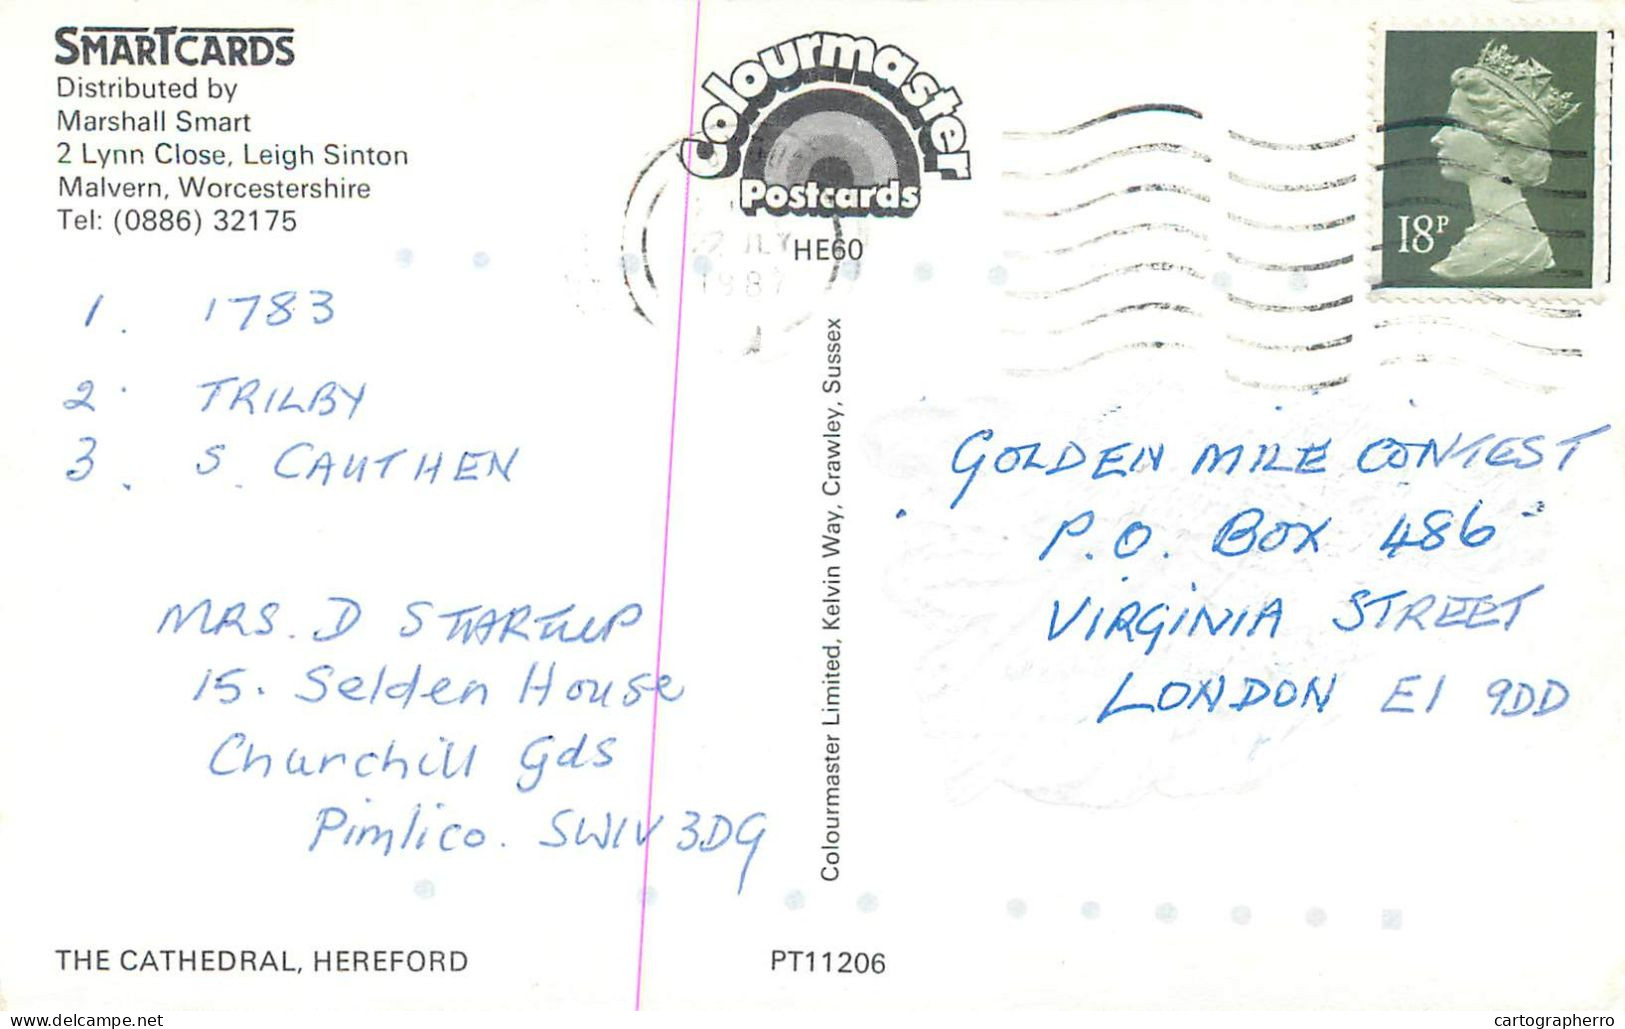 SMARTCARDS
Distributed by
Marshall Smart
2 Lynn Close, Leigh Sinton
Malvern, Worcestershire
Tel: (0886) 32175
1. 1783
2. TRILBY
3. S. CAUTHEN
MRS. D STARTUP
15. Selden House
Churchill Gds
Pimlico. SW1V 3DG
THE CATHEDRAL, HEREFORD
Colourmaster
Postcards
HE60
JLY
1987
Colourmaster Limited, Kelvin Way, Crawley, Sussex
PT11206
18P
GOLDEN MILE CONTEST
P.O. BOX 486
VIRGINIA STREET
LONDON E1 9DD
delcampe.net
cartographerro